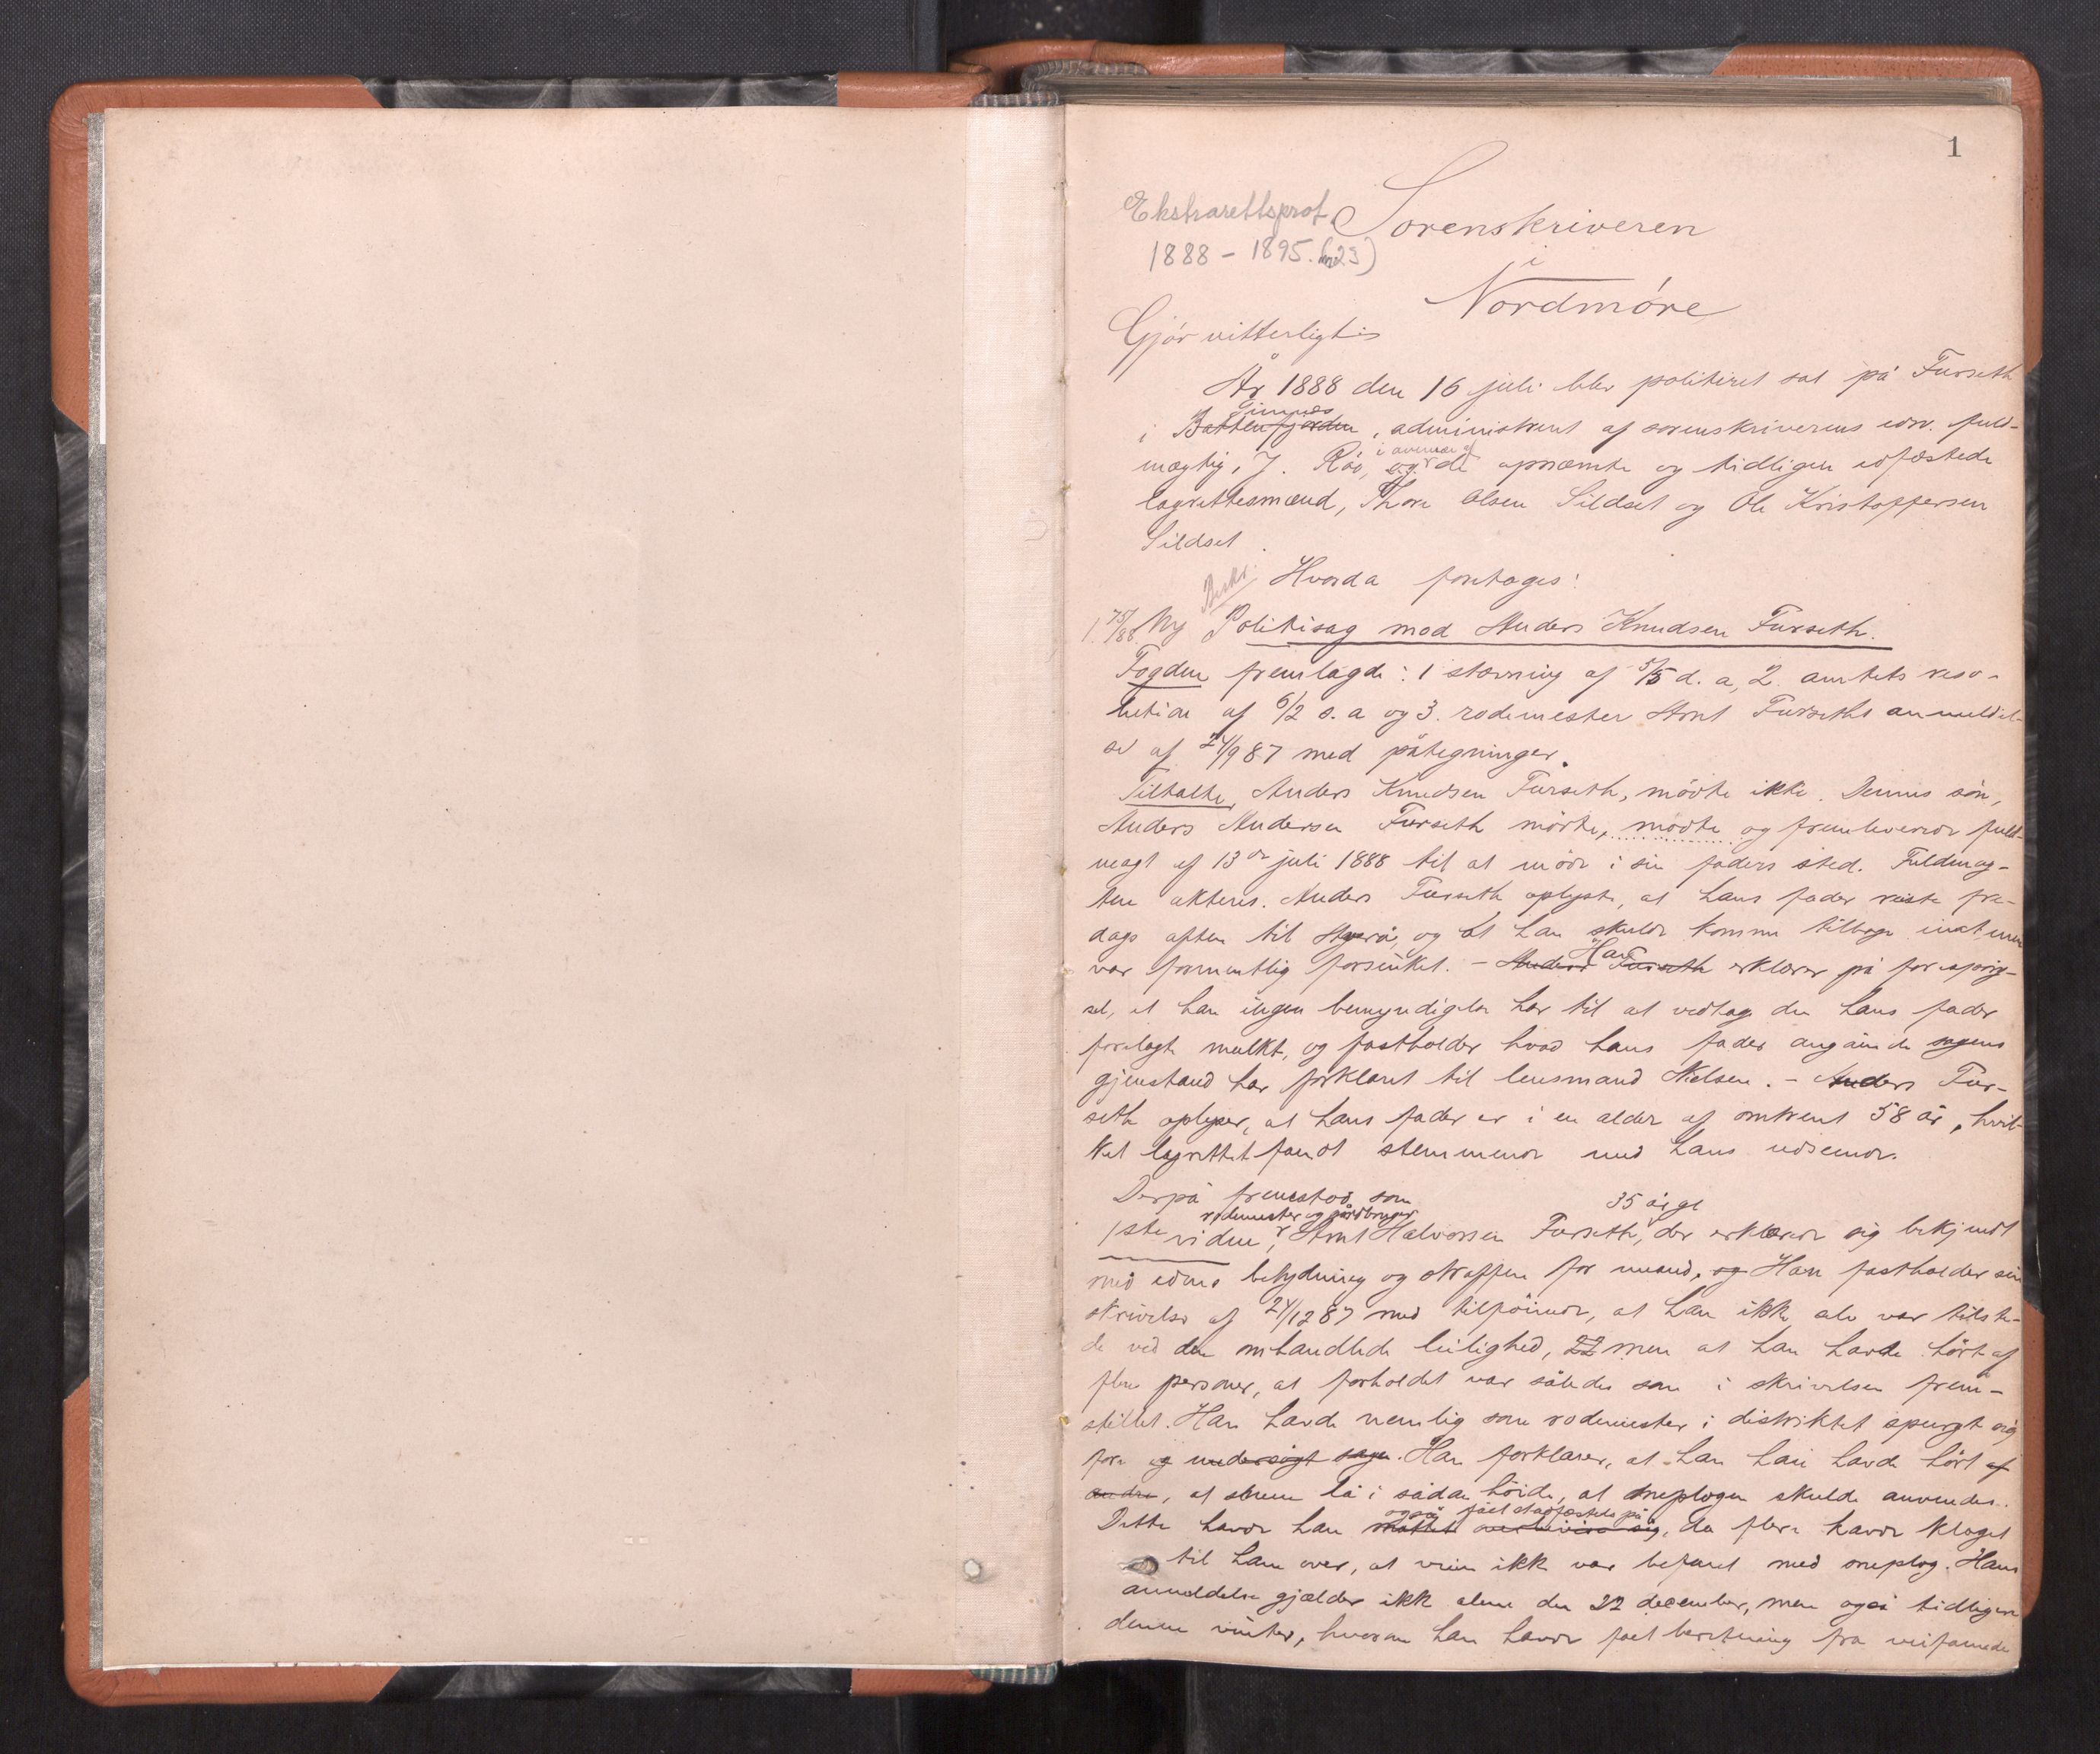 1
Ekstrarettsprot.
1888 - 1895. (nr 23)
Sorenskriveren
i
Nordmöre
Gjör vitterligt:
År 1888 den 16 juli blev politiret sat på Furseth
Gimnes
i Battenfjorden, administreret af sorenskriverens edsv. fuld-
i overvær af
mægtig, J. Röv, og de opnævnte og tidligere edfæstede
lagrettesmænd, Thore Olsen Sildset og Ole Kristoffersen
Sildset.
Hvorda foretoges:
Beskr.
1. 75/88 Ny Politisag mod Anders Knudsen Furseth.
Fogden fremlagde: 1 stævning af 5/5 d. a, 2. amtets reso-
lution af 6/2 s. a og 3. rodemester Arnt Furseths anmeldel-
se af 24/9 87 med påtegninger.
Tiltalte, Anders Knudsen Furseth, mödte ikke. Dennes sön,
Anders Andersen Furseth mödte, mødte og fremleverede fuld-
magt af 13de juli 1888 til at möde i sin faders sted. Fuldmag-
ten akteres. Anders Furseth oplyste, at hans fader reiste fre-
dags aften til og at han skulde komme tilbage inat men
Han
var formentlig forsinket. - Anders Furseth erklærer på forespörg-
sel, at han ingen bemyndigelse har til at vedtage den hans fader
forelagte mulkt, og fastholder hvad hans fader angående sagens
gjenstand har forklaret til lensmand Nielsen. - Anders Fur-
seth oplyser, at hans fader er i en alder af omtrent 58 år, hvil-
ket lagrettet fandt stemmende med hans udseende.
Derpå fremstod som
rodemester og gårdbruger 35 årge
1ste vidne, Arnt Halvorsen Furseth, der erklærede sig bekjendt
med edens betydning og straffen for mened, og Han fastholder sin
skrivelse af 24/12 87 med tilföiende, at han ikke selv var tilste-
de ved den omhandlede leilighed, 22 men at han havde hört af
flere personer, at forholdet var således som i skrivelsen frem-
stillet. Han havde nemlig som rodemester i distriktet spurgt sig
fore og undersögt sagen. Han forklarer, at han havde hört af
andre, at sneen lå i sådan höide, at sneplogen skulde anvendes.
også fået stadfæstelse på
Dette havde han måttet overbevise sig, da flere havde klaget
til ham over, at veien ikke var befaret med sneplog. Hans
anmeldelse gjælder ikke alene den 22 december, men også tidligere
denne vinter, hvorom han havde faet beretning fra veifarende